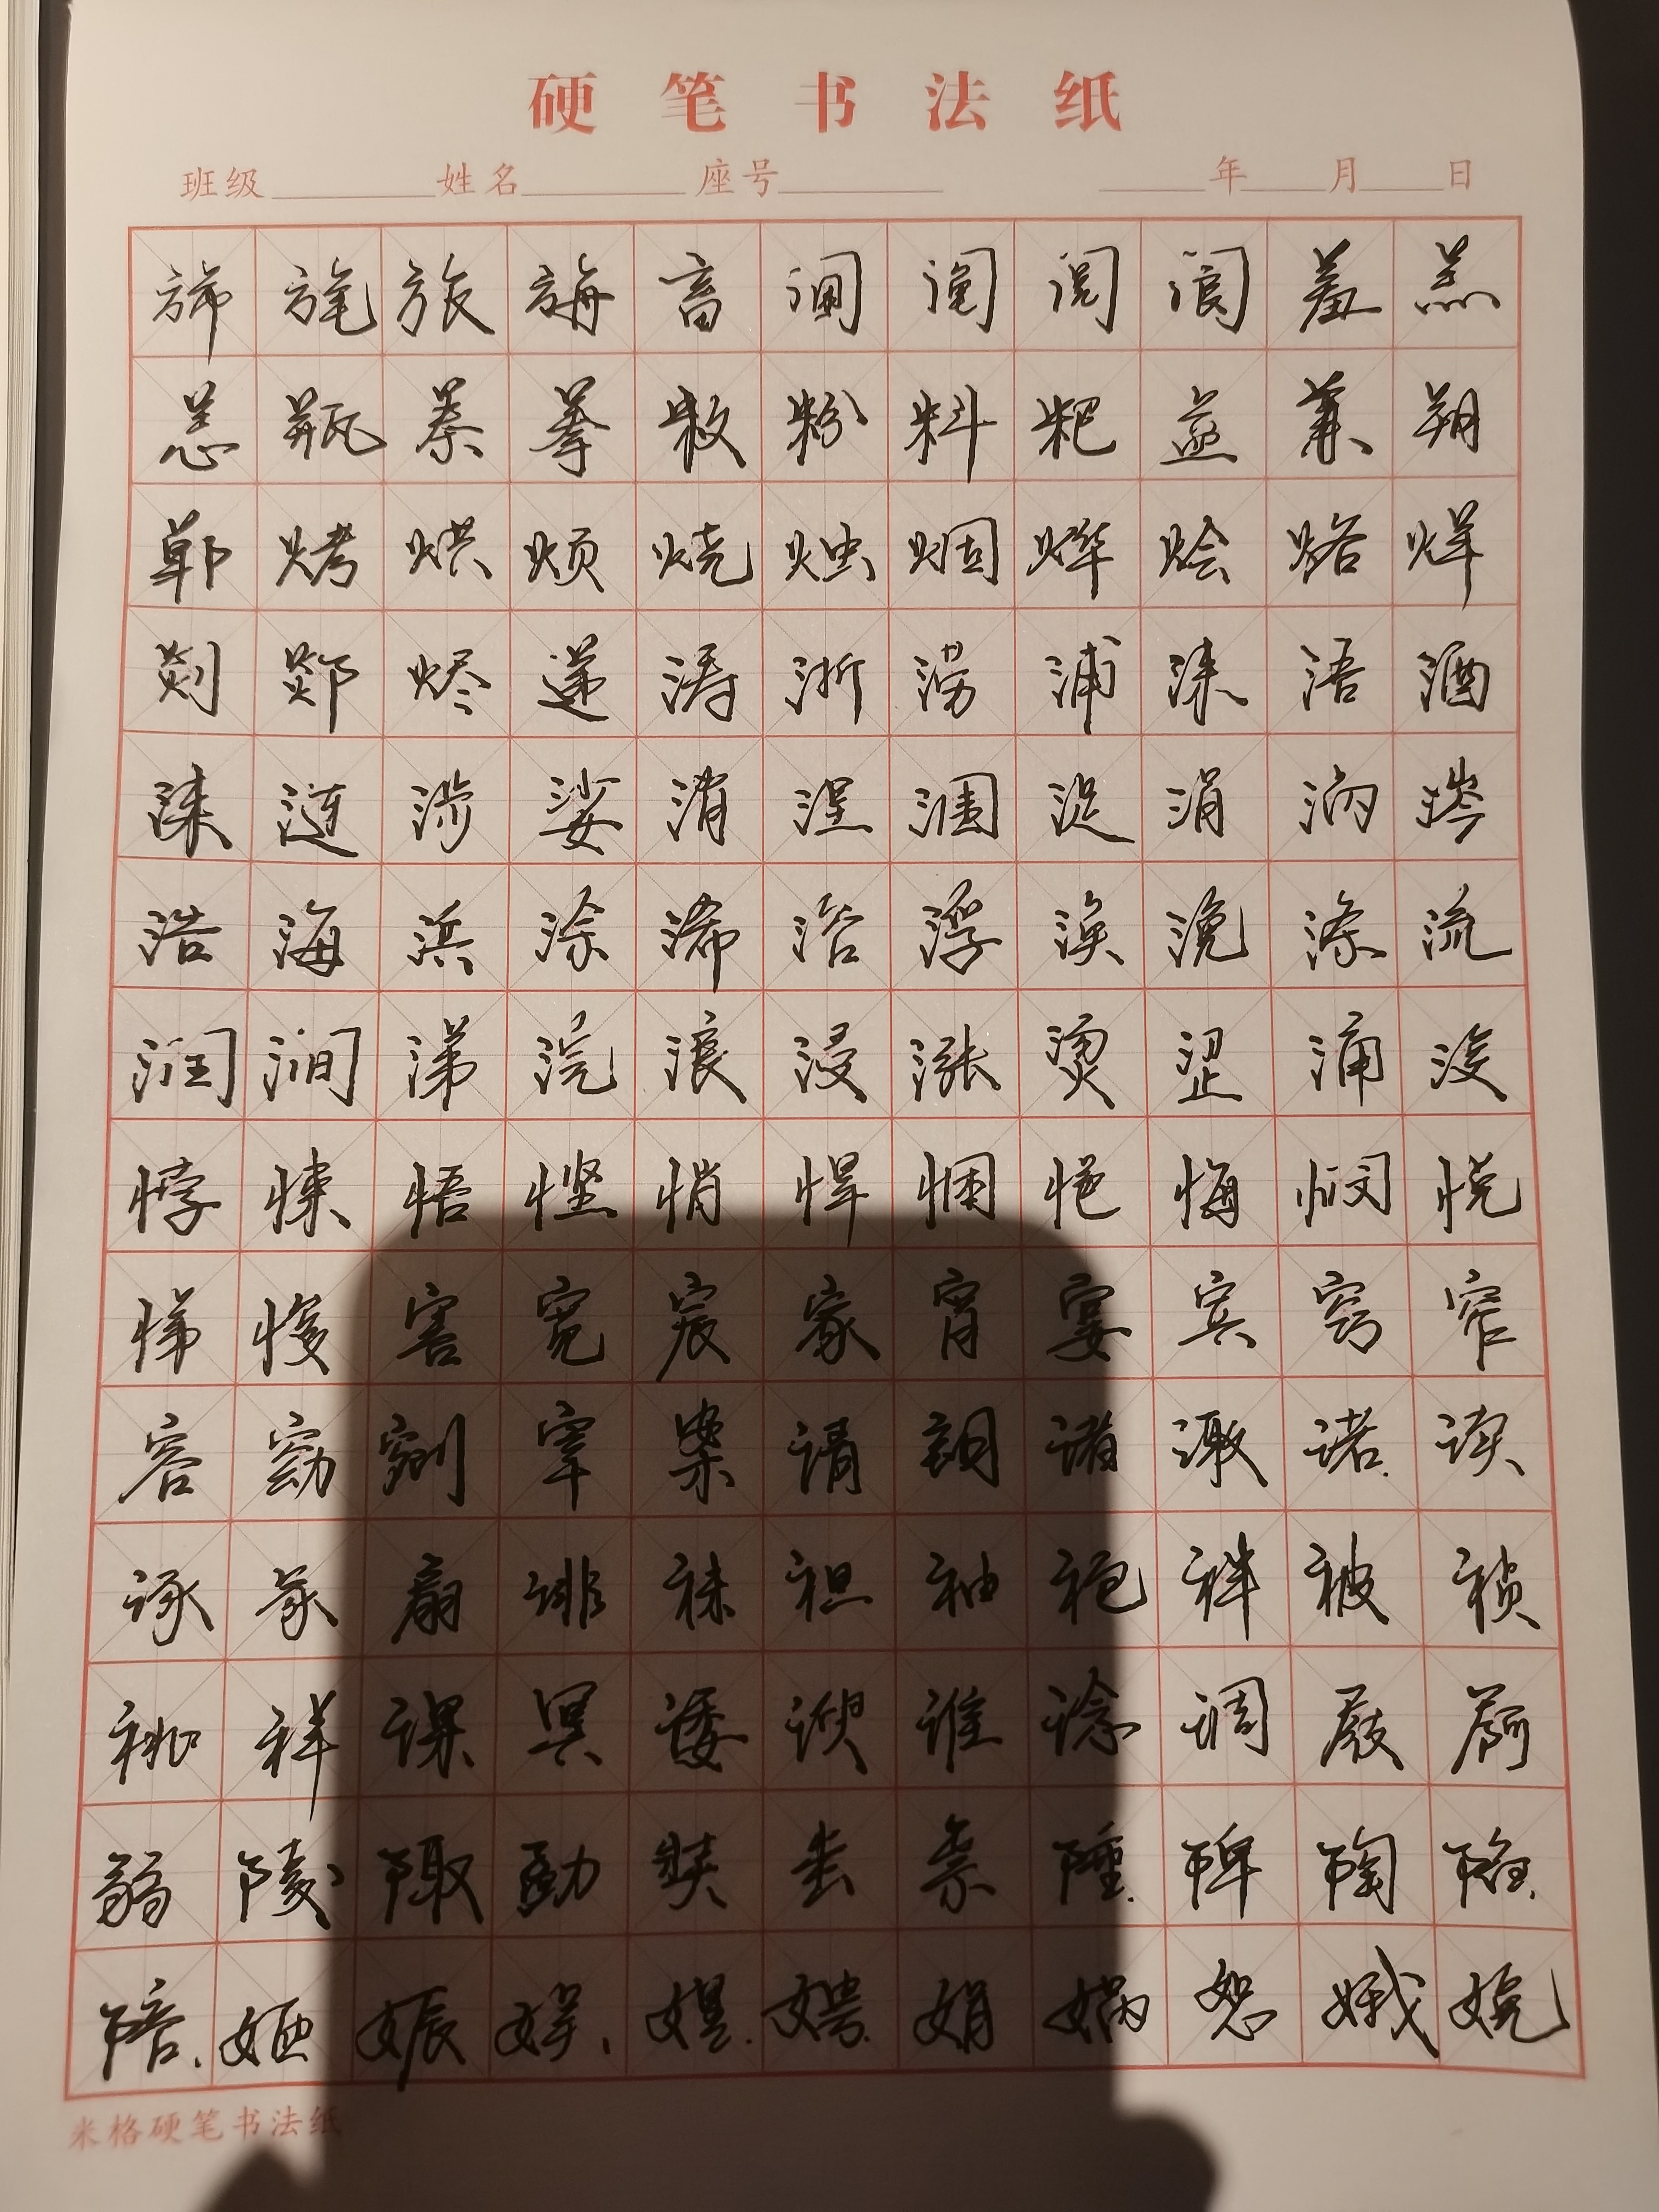 硬笔书法纸
班级 姓名 座号 年 月 日
旆旄旅旃畜阃阄阅阆羞羔
恙瓶桊拳敉粉料粑益兼朔
郸烤烘烦烧烛烟烨烩烙烊
剡郯烬递涛浙涝浦涑浯酒
涞涟涉娑消涅涠浞涓涡涔
浩海浜涂浠浴浮涣浼涤流
润涧涕浣浪浸涨烫涩涌浚
悖悚悟悭悄悍悃悒悔悯悦
悌悛害宽宸家宵宴宾窍窄
容窈剜宰案请朗诸诹诺读
诼冢扇诽袜袒袖袍袢被祯
祧祥课冥诿谀谁谂调屐屙
弱陵陬勐奘蚩祟陲陴陶陷
陪娅娠娱娌娉娟娲恕娥娩
米格硬笔书法纸